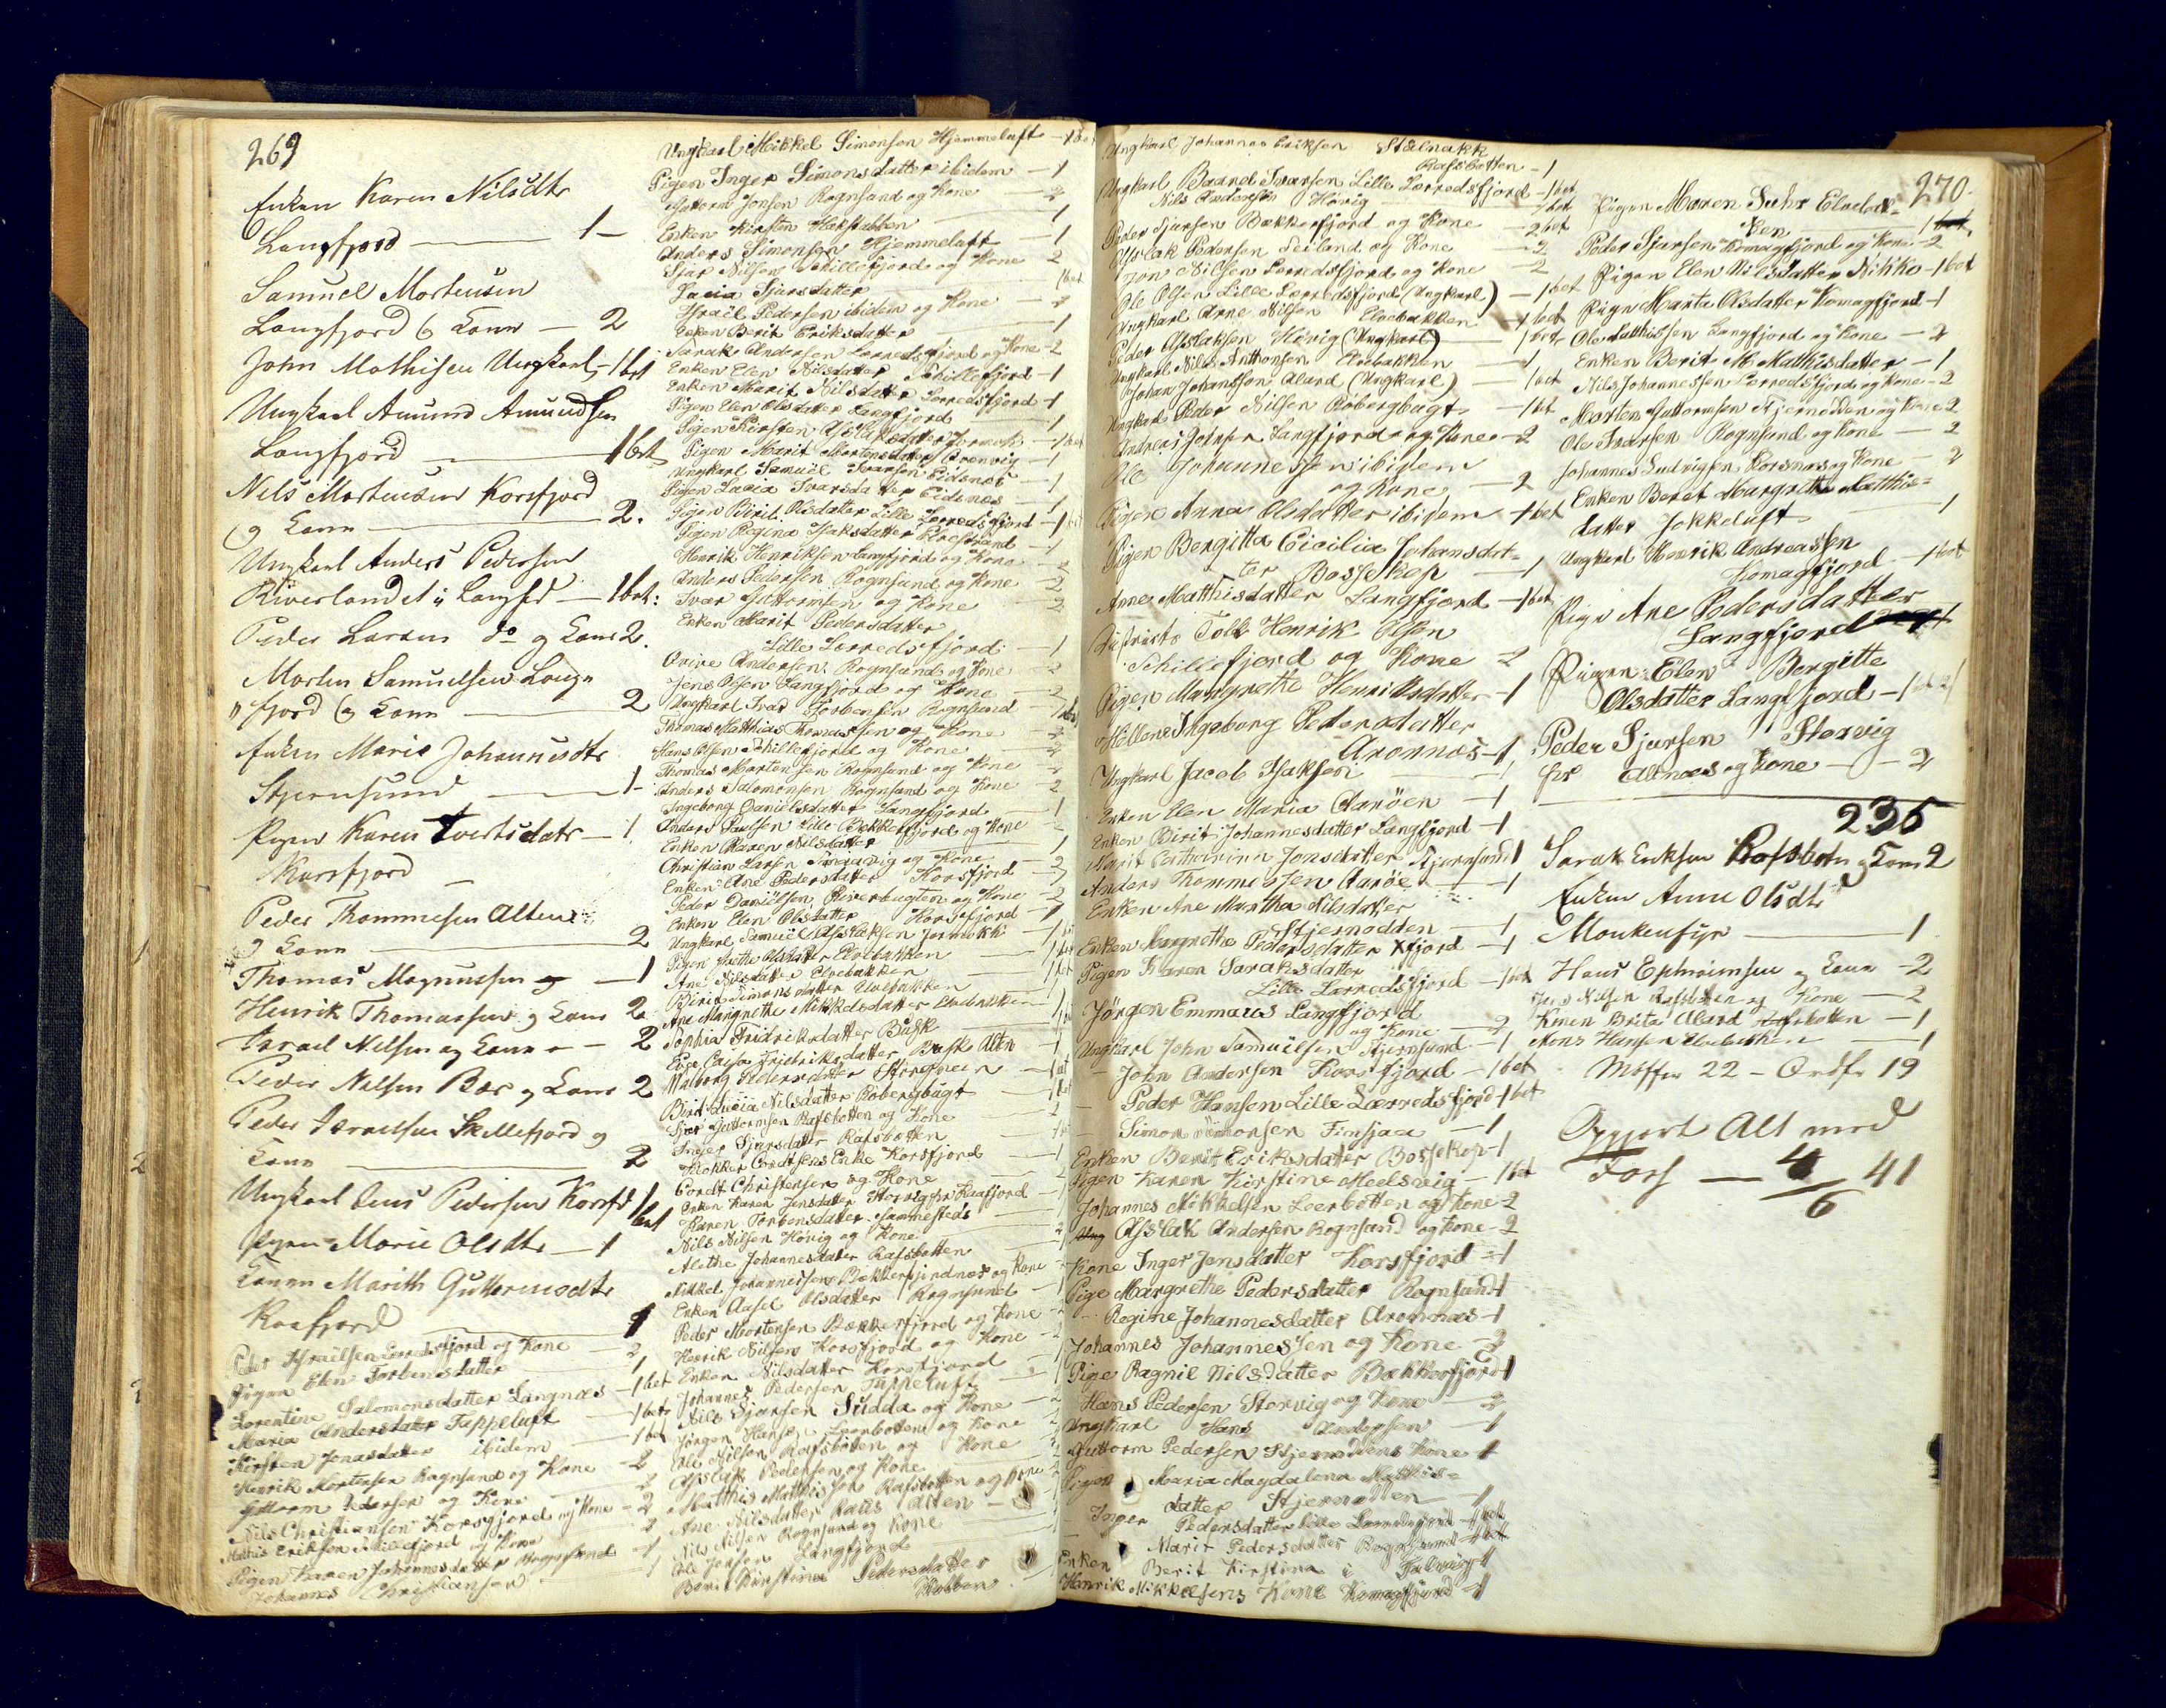 269
Enken Karen Nilsdtr
Langfjord — 1 —
Samuel Mortensen
Langfjord og Kone — 2
John Mathisen Ungkarl, — 1 bet
Ungkarl Amund Amundsen
Langfjord — 1 bet
Nils Mortensen Korsfjord
og Kone — 2.
Ungkarl Anders Pedersen
Riverlandet i Langfd — 1 bet:
Peder Larsen do og Kone 2.
Morten Samuelsen Lang
" fjord og Kone — 2
Enken Maria Johannisdtr
Stjernsund — 1 -
Pigen Karen Ivertsdatr — 1.
Korsfjord —
Peder Thommesen Alten
og Kone — 2
Thomas Magnussen og — 1
Henrik Thomassen og Kone 2
Israel Nilsen og Kone — 2
Peder Nilsen Bær og Kone 2
Peder Israelsen Skillefjord og
Kone — 2
Ungkarl Jens Pedersen Korsfd 1 bet
Pigen Marie Olsdtr — 1
Konen Marith Guttormsdtr
Kaafjord — 1
Peder Israëlsen Lerredsfjord og Kone — 2
Pigen Elen Torbensdatter — 1
Lorentine Salomonsdatter Langnæs — 1 bet
Maria Andersdatter Tappeluft — 1 bet
Kirsten Jonasdatter ibidem — 1 bet
Henrik Mortensen Rognsund og Kone — 2
Guttorm Pedersen og Kone — 2
Nils Christiansen Korsfjord og Kone — 2
Mathis Eriksen Skillefjord og Kone — 2
Pigen Karen Johannesdatter Rognsund — 1
Johannes Christiansen — 1
Ungkarl Mikkel Simonsen Hjemmeluft — 1 bet
Pigen Inger Simonsdatter ibidem — 1
Guttorm Jonsen Rognsund og Kone — 2
Enken Kirsten Hakstabben — 1
Anders Simonsen Hjemmeluft — 1
Sjar Nilsen Schillefjord og Kone — 2
Lucia Sjursdatter — 1 bet
Israël Pedersen ibidem og Kone — 2
Enken Berit Eriksdatter — 1
Sarak Andersen Lerredsfjord og Kone — 2
Enken Elen Nilsdatter Schillefjord — 1
Enken Marit Nilsdatter Lerredsfjord — 1
Pigen Elen Olsdatter Langfjord — 1
Pigen Kirsten Aslaksdatter Jormok — 1 bet
Pigen Marit Mortensdatter Qvenvig — 1
Ungkarl Samuël Ivarsen Eidenæs — 1
Pigen Lucia Ivarsdatter Eidenæs — 1
Pigen Birit Olsdatter Lille Lerredsfjord — 1
Pigen Regina Isaksdatter — 1
Henrik Henriksen Langfjord og Kone — 2
Anders Pedersen Rognsund og Kone — 2
Ivar Guttormsen og Kone — 2
Enken Marit Pedersdatter
Lille Lerredsfjord — 1
Qvive Andersen Rognsund og Kone — 2
Jens Olsen Langfjord og Kone — 2
Ungkarl Ivar Torbensen Rognsund — 1 bet
Thomas Matthias Thomassen og Kone — 2
Hans Olsen Schillefjord og Kone — 2
Thomas Mortensen Rognsund og Kone — 2
Anders Salomonsen Rognsund og Kone — 2
Ingeborg Danielsdatter Langfjord — 1
Anders Paulsen Lille Bekkerfjord og Kone — 2
Enken Karen Nilsdatter — 1
Christian Larsen og Kone — 2
Enken Ane Pedersdatter Korsfjord — 1
Peder Daniëlsen Riverbugten og Kone — 2
Enken Elen Olsdatter Korsfjord — 1
Ungkarl Samuël Aslaksen Jormokk — 1
Pigen Grethe Olsdatter Elvebakken — 1 bet
Ane Nilsdatter Elvebakken — 1 bet
Birit Simonsdatter Elvebakken
Ane Margrethe Mikkelsdatter Elvebakken — 1
Sophia Fridriksdatter Bask
Eva Caisa Fredriksdatter Bask Altn — 1
Valborg Pedersdatter — 1 bet
Birit Lucia Nilsdatter Robergbugt — 1 bet
Sjur Guttormsen Rafsbotten og Kone — 2
Inger Sjursdatter Rafsbotten
Klokker Cordtsens Enke Korsfjord — 1
Cordt Christensen og Kone
Enken Karen Jensdatter Storvig Kaafjord
Karen Torbensdatter sammesteds — 1
Nils Nilsen Hövig og Kone — 2
Alethe Johannesdatter Rafsbotten — 1
Mikkel Johannessen Bekkerfjordnæs og Kone
Enken Aasel Olsdatter Rognsund — 1
Peder Mortensen Bekkerfjord og Kone — 2
Henrik Nilsen Korsfjord og Kone — 2
Enken Nilsdatter Korsfjord — 1
Johannes Pedersen Tappeluft — 1
Nils Sjursen Sudda og Kone — 2
Jörgen Hansen Leerbotten og Kone — 2
Ole Nilsen Rafsbotten og Kone — 2
Aslak Pedersen og Kone — 2
Matthis Matthisen Rafsbotten og Kone — 2
Ane Nilsdatter Raus Alten — 1
Nils Nilsen Rognsund og Kone
Ole Jensen Langfjord — 1
Berit Kirstina Pedersdatter
Stubben — 1
Ungkarl Johannes Eriksen Stælnakk
Rafsbotten — 1
Ungkarl Baard Ivarsen Lille Lerredsfjord — 1 bet
Nils Andersen Hövig — 1 bet
Peder Sjursen Bækkerfjord og Kone — 2 bet
Aslak Pedersen Seiland og Kone — 2
Jon Nilsen Lerredsfjord og Kone — 2
Ole Olsen Lille Lerredsfjord (Ungkarl) — 1 bet
Ungkarl Arne Nilsen Elvebakken — 1 bet
Peder Aslaksen Hövig (Ungkarl) — 1 bet
Ungkarl Nils Anthonsen Elvebakken — 1
Johan Johansson Aland (Ungkarl) — 1 bet
Ungkarl Peder Nilsen Robergbugt — 1 bet
Andreas Johnsen Langfjord og Kone — 2
Ole Johannessen ibidem
og Kone — 2
Pigen Anna Olsdatter ibidem — 1 bet
Pigen Bergitta Cicilia Johansdat=
ter Bossekop — 1
Anne Matthisdatter Langfjord — 1 bet
Distrikts Tolk Henrik Olsen
Schillefjord og Kone — 2
Pigen Margrethe Henriksdatter — 1
Hellene Ingeborg Pedersdatter
Aronnæs — 1
Ungkarl Jacob Isaksen — 1
Enken Elen Maria Aaröen — 1
Enken Birit Johannesdatter Langfjord — 1
Marit Catharina Jonsdatter Stjernsund 1
Anders Thommessen Aaröe — 1
Enken Ane Martha Nilsdatter
Stjernodden — 1
Enken Margrethe Pedersdatter Kfjord — 1
Pigen Karen Saraksdatter
Lille Lerredsfjord — 1 bet
Jörgen Emmaus Langfjord
og Kone — 2
Ungkarl John Samuëlsen Stjernsund — 1
– John Andersen Korsfjord — 1 bet
– Peder Hansen Lille Lærredsfjord — 1 bet
– Simon Simonsen Timsjaa — 1
Enken Berit Eriksdatter Bossekop — 1
Pigen Karen Kirstine Meelsvig — 1 bet
Johannes Mikkelsen Leerbotten og Kone — 2
Aslak Andersen Rognsund og Kone — 2
Kone Inger Jonsdatter Korsfjord — 1
Pige Margrethe Pedersdatter Rognsund 1
– Regine Johannesdatter Aronnæs — 1
Johannes Johannessen og Kone — 2
Pige Ragnil Nilsdatter Bækkerfjord 1
Hans Pedersen Storvig og Kone — 2
Ungkarl Hans Andersen — 1
Guttorm Pedersen Stjernoddens Kone 1
Pigen Maria Magdalena Matthis=
datter Stjernodden — 1
Inger Pedersdatter Lille Lerredsfjord — 1 bet
– Marit Pedersdatter Rognsund — 1 bet
Enken Berit Kirstina i Talvig — 1
Henrik Mikkelsens Kone Komagfjord — 1
270.
Pigen Maren Suhr Elvebak=
ken — 1 bet.
Peder Sjursen Komagfjord og Kone — 2
Pigen Elen Nilsdatter Nikko — 1 bet
Pigen Marta Olsdatter Komagfjord — 1
Ole Matthissen Langfjord og Kone — 2
Enken Berit M. Matthisdatter — 1
Nils Johannessen Lerredsfjord og Kone — 2
Morten Guttormsen Stjernodden og Kone 2
Ole Ivarsen Rognsund og Kone — 2
Johannes Ludvigsen Korsnæs og Kone — 2
Enken Beret Margrethe Matthis=
datter Jokkeluft — 1
Ungkarl Henrik Andreassen
Komagfjord — 1 bet
Pige Ane Pedersdatter
Langfjord
Pigen Elen Bergitte
Olsdatter Langfjord — 1
Peder Sjursen Storvig
fra Altnæs og Kone — 2
235
Sarak Eriksen Rafsbotn og Kone 2
Enken Anne Olsdtr
Monkenfyr — 1
Hans Ephraimsen og Kone — 2
Jens Nilsen Rafsbotten og Kone — 2
Konen Brita Aland Rafsbotten — 1
Mons Hansen Elvebakken — 1
Möffer 22 — Ordfr 19
Opgjort Alt med
Fors — 4 41
6